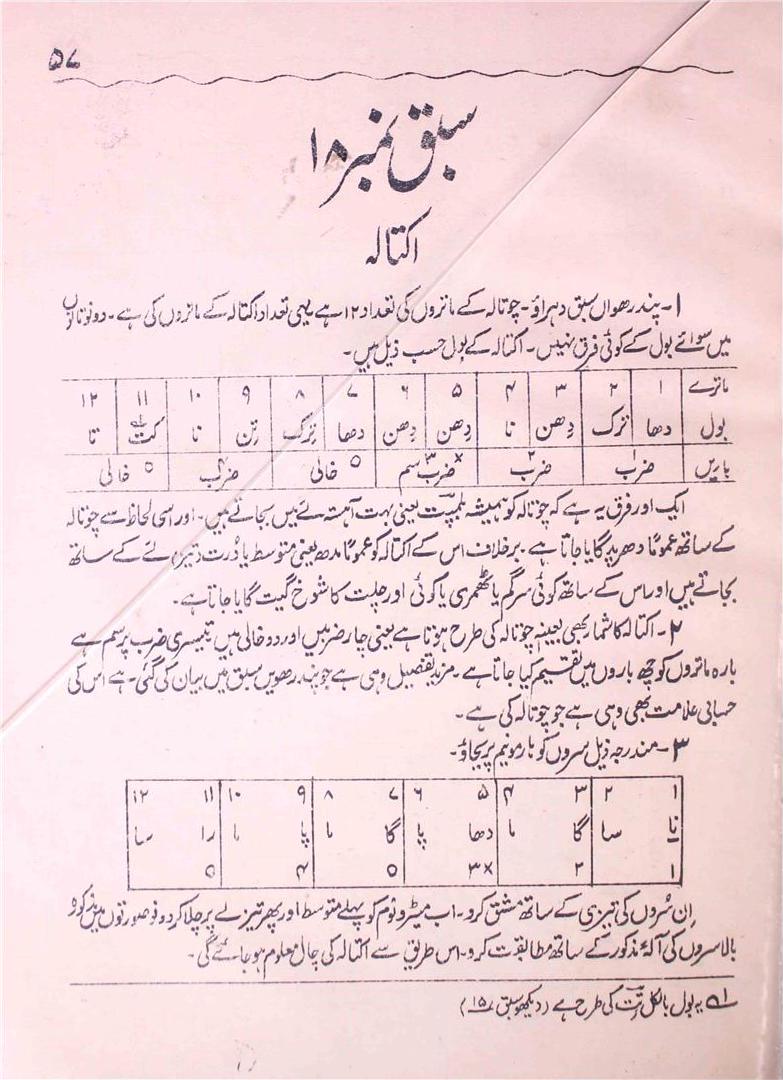 ۵۷
سبق نمبر ۱۸
اکتالہ
۱۔ پندرھواں سبق دہراؤ۔ چوتالہ کے ماتروں کی تعداد ۱۲ ہے یہی تعداد اکتالہ کے ماتروں کی ہے۔ دونو تالوں
میں سوائے بول کے کوئی فرق نہیں۔ اکتالہ کے بول حسب ذیل ہیں۔
ماترے ۱ ۲ ۳ ۴ ۵ ۶ ۷ ۸ ۹ ۱۰ ۱۱ ۱۲
بول دھا ترک دِھن نا دِھن دِھن دھا تِرک تِن نا کت لہ تا
باریں ضرب ۱ ضرب ۲ ضرب ۳ سم × ۵ خالی ضرب ۴ ۵ خالی
ایک اور فرق یہ ہے کہ چوتالہ کو ہمیشہ بلمپت یعنی بہت آہستہ لَے میں بجاتے ہیں۔ اور اسی لحاظ سے چوتالہ
کے ساتھ عموماً دھرپد گایا جاتا ہے۔ برخلاف اس کے اکتالہ کو عموماً مدھ یعنی متوسط یا دُرت (تیز) لَے کے ساتھ
بجاتے ہیں اور اس کے ساتھ کوئی سرگم یا ٹھمری یا کوئی اور چلت کا شوخ گیت گایا جاتا ہے۔
۲۔ اکتالہ کا شمار بھی بعینہٖ چوتالہ کی طرح ہوتا ہے یعنی چار ضربیں اور دو خالی ہیں۔ تیسری ضرب پر سم ہے
بارہ ماتروں کو چھ باروں میں تقسیم کیا جاتا ہے۔ مزید تفصیل وہی ہے جو پندرھویں سبق میں بیان کی گئی۔ ہے اس کی
حسابی علامت بھی وہی ہے جو چوتالہ کی ہے۔
۳۔ مندرجہ ذیل سروں کو ہارمونیم پر بجاؤ۔
۱ ۲ ۳ ۴ ۵ ۶ ۷ ۸ ۹ ۱۰ ۱۱ ۱۲
نا سا گا ما دھا پا گا ما پا ما را سا
۱ ۲ ۳× ۵ ۴ ۵
اِن سُروں کی تیزی کے ساتھ مشق کرو۔ اب میٹرونوم کو پہلے متوسط اور پھر تیز لے پر چلا کر دونو صورتوں میں مذکورہ
بالا سروں کی آلۂ مذکور کے ساتھ مطابقت کرو۔ اس طریق سے اکتالہ کی چال معلوم ہو جائے گی۔
لہ یہ بول بالکل تِت کی طرح ہے (دیکھو سبق ۱۵)